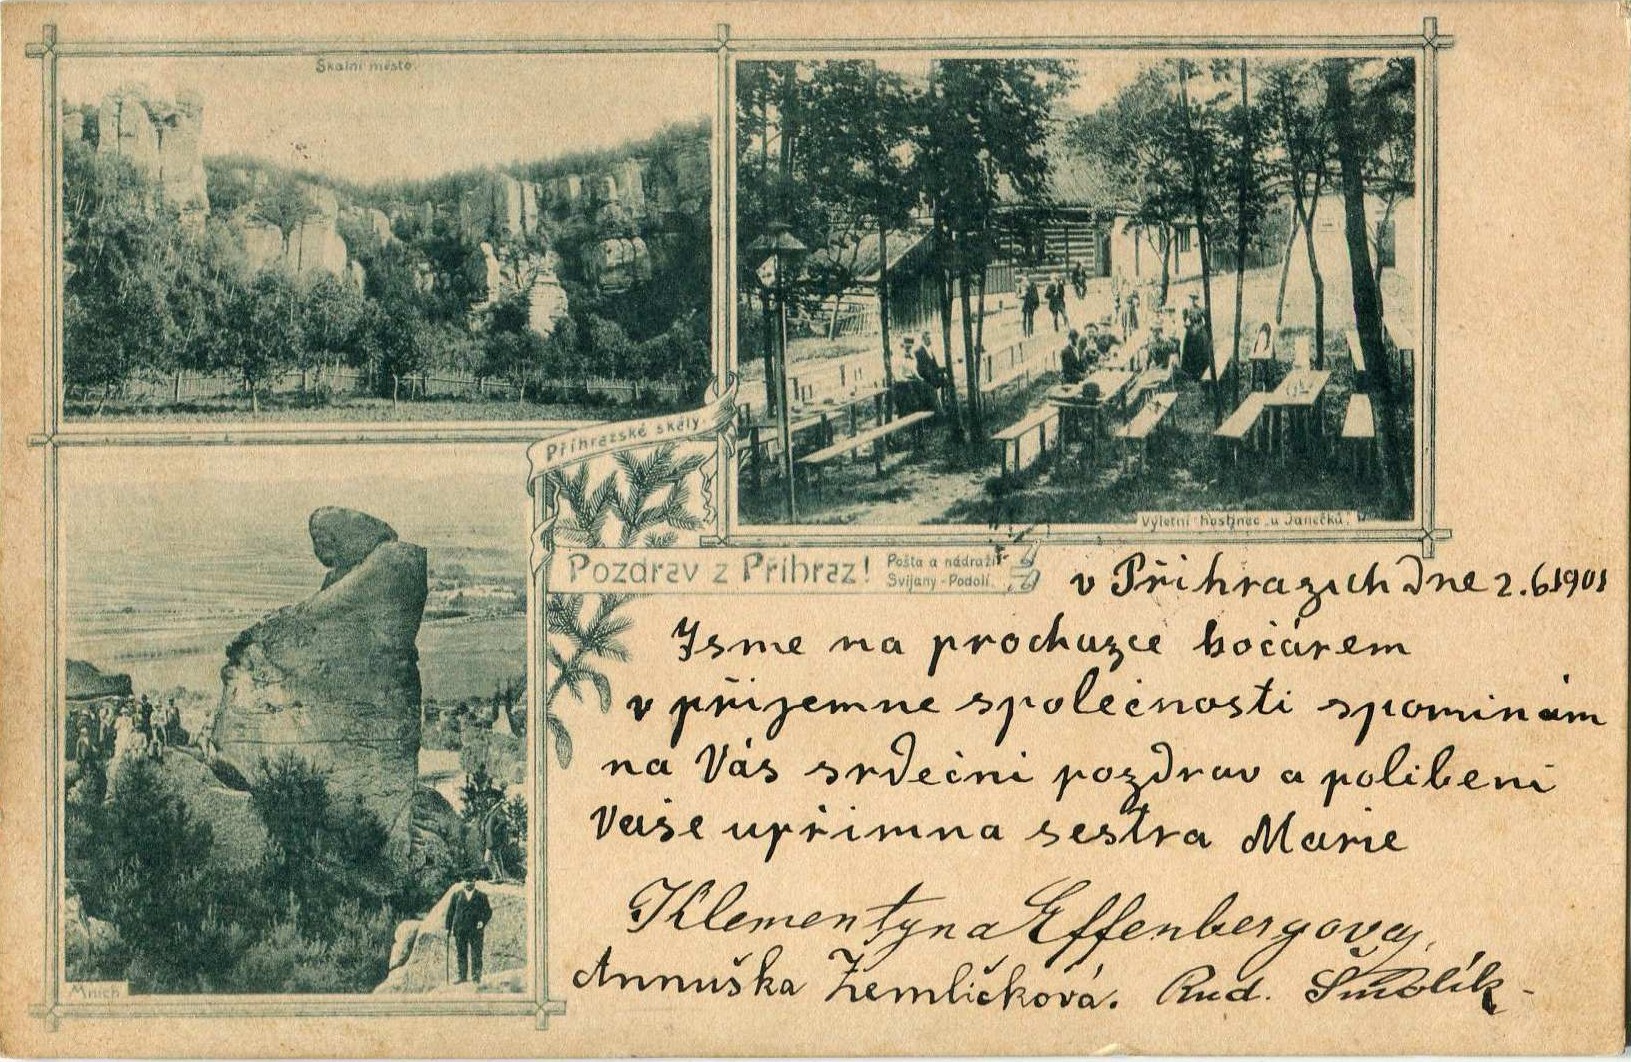 Skalní město.
Příhrazské skály.
Výletní hostinec „u Janečků“.
Mnich
Pozdrav z Příhraz!
Pošta a nádraží
Svijany-Podolí.
v Přihrazich dne 2.6 1901
Jsme na prochazce kočárem
v přijemne společnosti spominám
na Vás srdečni pozdrav a polibeni
Vaše upřimna sestra Marie
Klementyna Effenbergova,
Annuška Žemličková. Rud. Šmolík